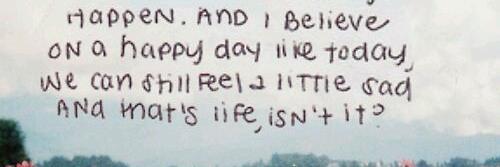 HAPPEN. AND I BelievE
ON a happy day like today,
WE can still FEEl a little sad
AND that's life, isN't it?